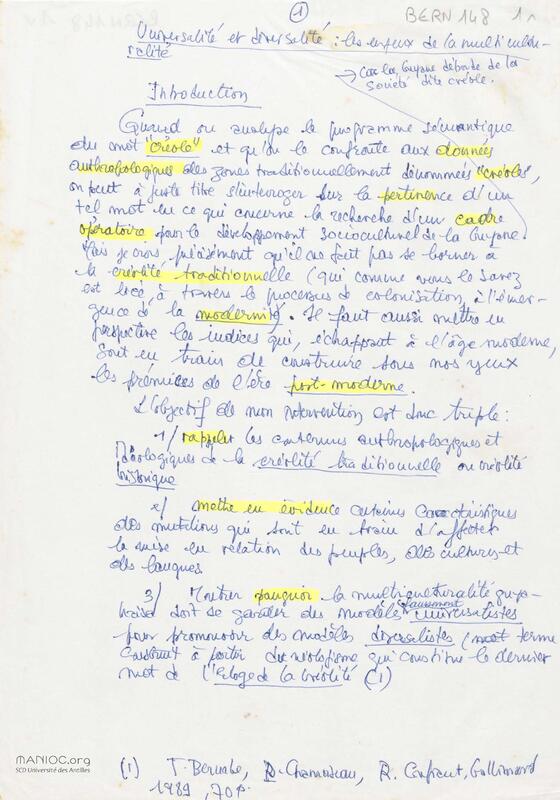 (1) BERN 148 1r
Universalité et diversalité : les enjeux de la multicultu-
ralité
→ Car la Guyane déborde de la
Société dite créole.
Introduction
Quand on analyse le programme sémantique
du mot "créole" et qu'on le confronte aux données
anthropologiques des zones traditionnellement dénommées "créoles",
on peut à juste titre s'interroger sur la pertinence d'un
tel mot en ce qui concerne la recherche d'un cadre
opératoire pour le développement socioculturel de la Guyane.
Mais je crois précisément qu'il ne faut pas se borner à
la créolité traditionnelle (qui comme vous le savez
est liée, à travers le processus de colonisation, à l'émer-
gence de la modernité). Il faut aussi mettre en
perspective les indices qui, échappant à l'âge moderne,
sont en train de construire sous nos yeux
les prémices de l'ère post-moderne.
L'objectif de mon intervention est donc triple :
1/ rappeler les contenus anthropologiques et
idéologiques de la créolité traditionnelle ou créolité
historique
2/ mettre en évidence certaines caractéristiques
des mutations qui sont en train d'affecter
la mise en relation des peuples, des cultures et
des langues
3/ Montrer pourquoi la multiculturalité guya-
naise doit se garder des modèles faussement universalistes
pour promouvoir des modèles diversalistes (mot terme
construit à partir du néologisme qui constitue le dernier
mot de l'Eloge de la Créolité (1)
(1) J. Bernabé, P. Chamoiseau, R. Confiant, Gallimard
1989, 70 p.
MANIOC.org
SCD Université des Antilles